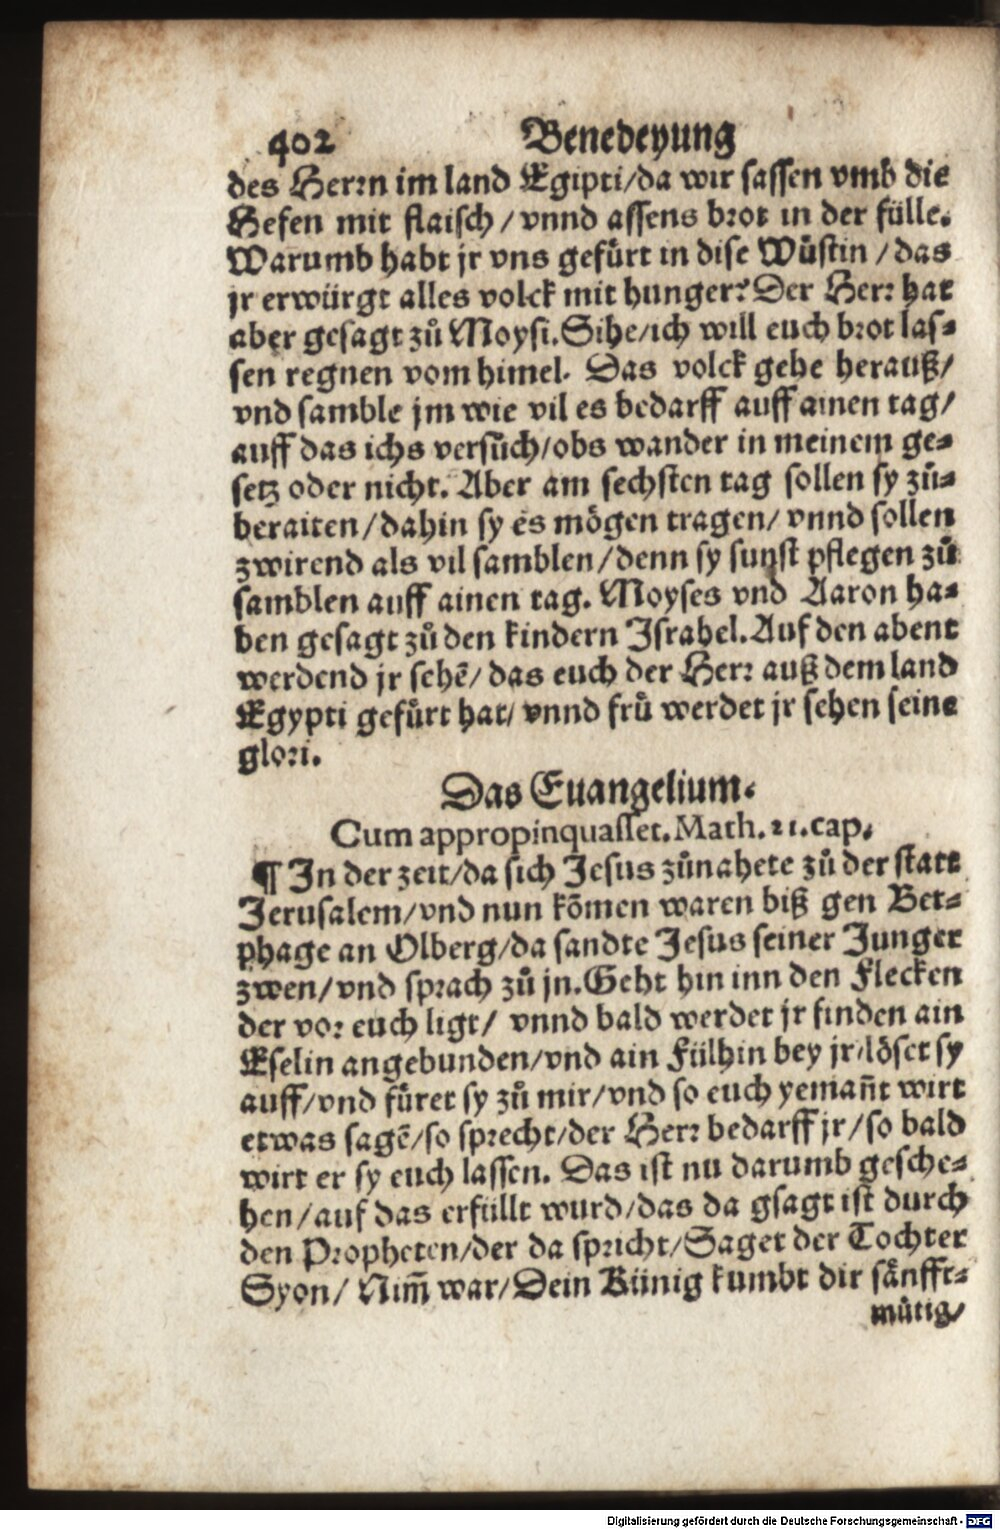 402 Benedeyung
des Herrn im land Egipti/da wir sassen vmb die
Hefen mit flaisch/vnnd assens brot in der fülle.
Warumb habt jr vns gefürt in dise Wüstin/das
jr erwürgt alles volck mit hunger? Der Herr hat
aber gesagt zů Moysi. Sihe/ich will euch brot las-
sen regnen vom himel. Das volck gehe herauß/
vnd samble jm wie vil es bedarff auff ainen tag/
auff das ichs versůch/obs wander in meinem ge-
setz oder nicht. Aber am sechsten tag sollen sy zů-
beraiten/dahin sy es mögen tragen/vnnd sollen
zwirend als vil samblen/denn sy sunst pflegen zů
samblen auff ainen tag. Moyses vnd Aaron ha-
ben gesagt zů den kindern Israhel. Auf den abent
werdend jr sehē/das euch der Herr auß dem land
Egypti gefůrt hat/vnnd frů werdet jr sehen seine
glori.
Das Euangelium.
Cum appropinquasset. Math. 21. cap.
¶ In der zeit/da sich Jesus zůnahete zů der statt
Jerusalem/vnd nun kōmen waren biß gen Bet-
phage an Olberg/da sandte Jesus seiner Junger
zwen/vnd sprach zů jn. Geht hin inn den Flecken
der vor euch ligt/vnnd bald werdet jr finden ain
Eselin angebunden/vnd ain Fülhin bey jr/löset sy
auff/vnd fůret sy zů mir/vnd so euch yemañt wirt
etwas sagē/so sprecht/der Herr bedarff jr/so bald
wirt er sy euch lassen. Das ist nu darumb gesche-
hen/auf das erfüllt wurd/das da gsagt ist durch
den Propheten/der da spricht/Saget der Tochter
Syon/Nim̄ war/Dein Künig kumbt dir sänfft-
můtig/
Digitalisierung gefördert durch die Deutsche Forschungsgemeinschaft - DFG